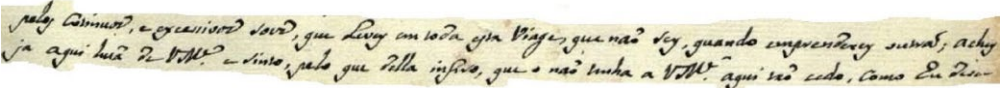 pelos continuos, e excessivos soes, que levey em toda esta Viage, que não sey, quando emprenderey outra; achey
ja aqui huã de VM.ce e sinto, pelo que della infiro, que o não tinha a VM.ce aqui tão cedo, como Eu dese